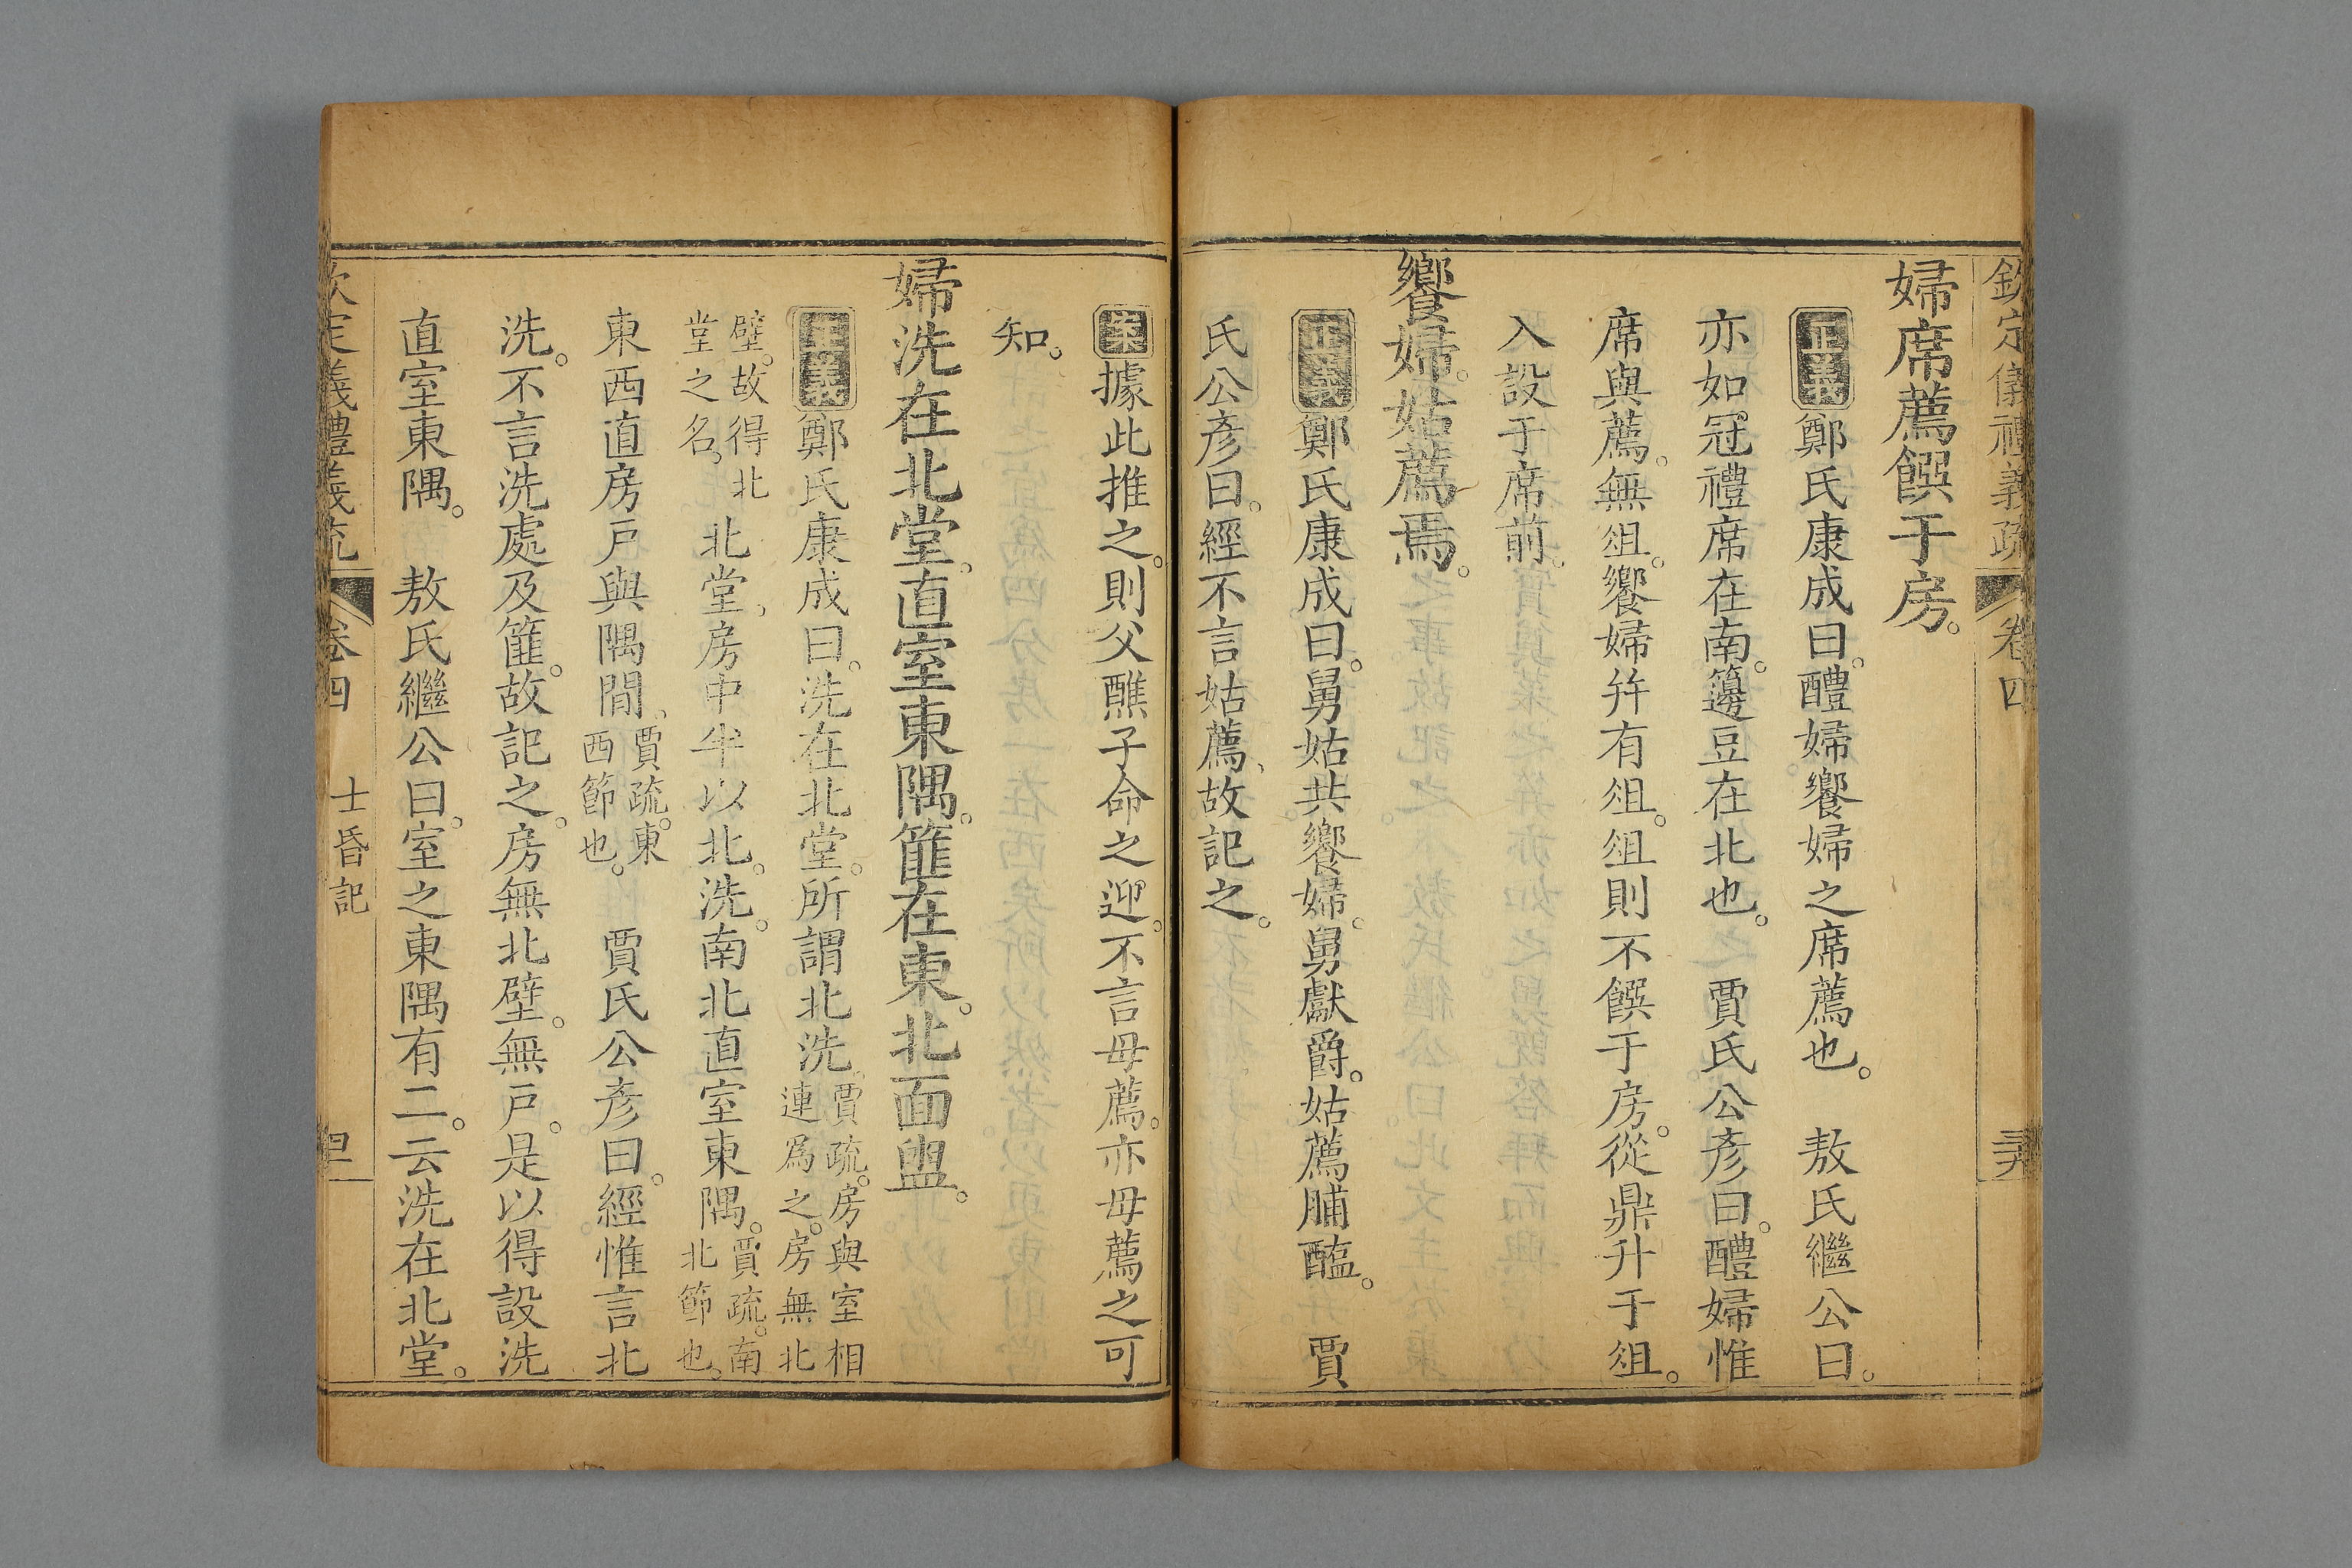 欽定儀禮義疏 卷四
婦席薦饌于房。
正義鄭氏康成曰。醴婦饗婦之席薦也。 敖氏繼公曰。
亦如冠禮席在南。籩豆在北也。 賈氏公彥曰。醴婦惟
席與薦。無俎。饗婦幷有俎。俎則不饌于房。從鼎升于俎。
入設于席前。
饗婦。姑薦焉。
正義鄭氏康成曰。舅姑共饗婦。舅獻爵。姑薦脯醢。 賈
氏公彥曰。經不言姑薦、故記之。
案據此推之。則父醮子命之迎。不言母薦。亦母薦之可
知。
婦洗在北堂。直室東隅。篚在東。北面盥。
正義鄭氏康成曰。洗在北堂。所謂北洗。賈疏。房與室相
連爲之。房無北
壁。故得北
堂之名。 北堂、房中半以北。洗。南北直室東隅。賈疏。南
北節也。
東西直房戶與隅閒。賈疏。東
西節也。 賈氏公彥曰。經惟言北
洗。不言洗處及篚。故記之。房無北壁。無戶。是以得設洗
直室東隅。 敖氏繼公曰。室之東隅有二。云洗在北堂。
欽定義禮義疏 卷四 士昏記